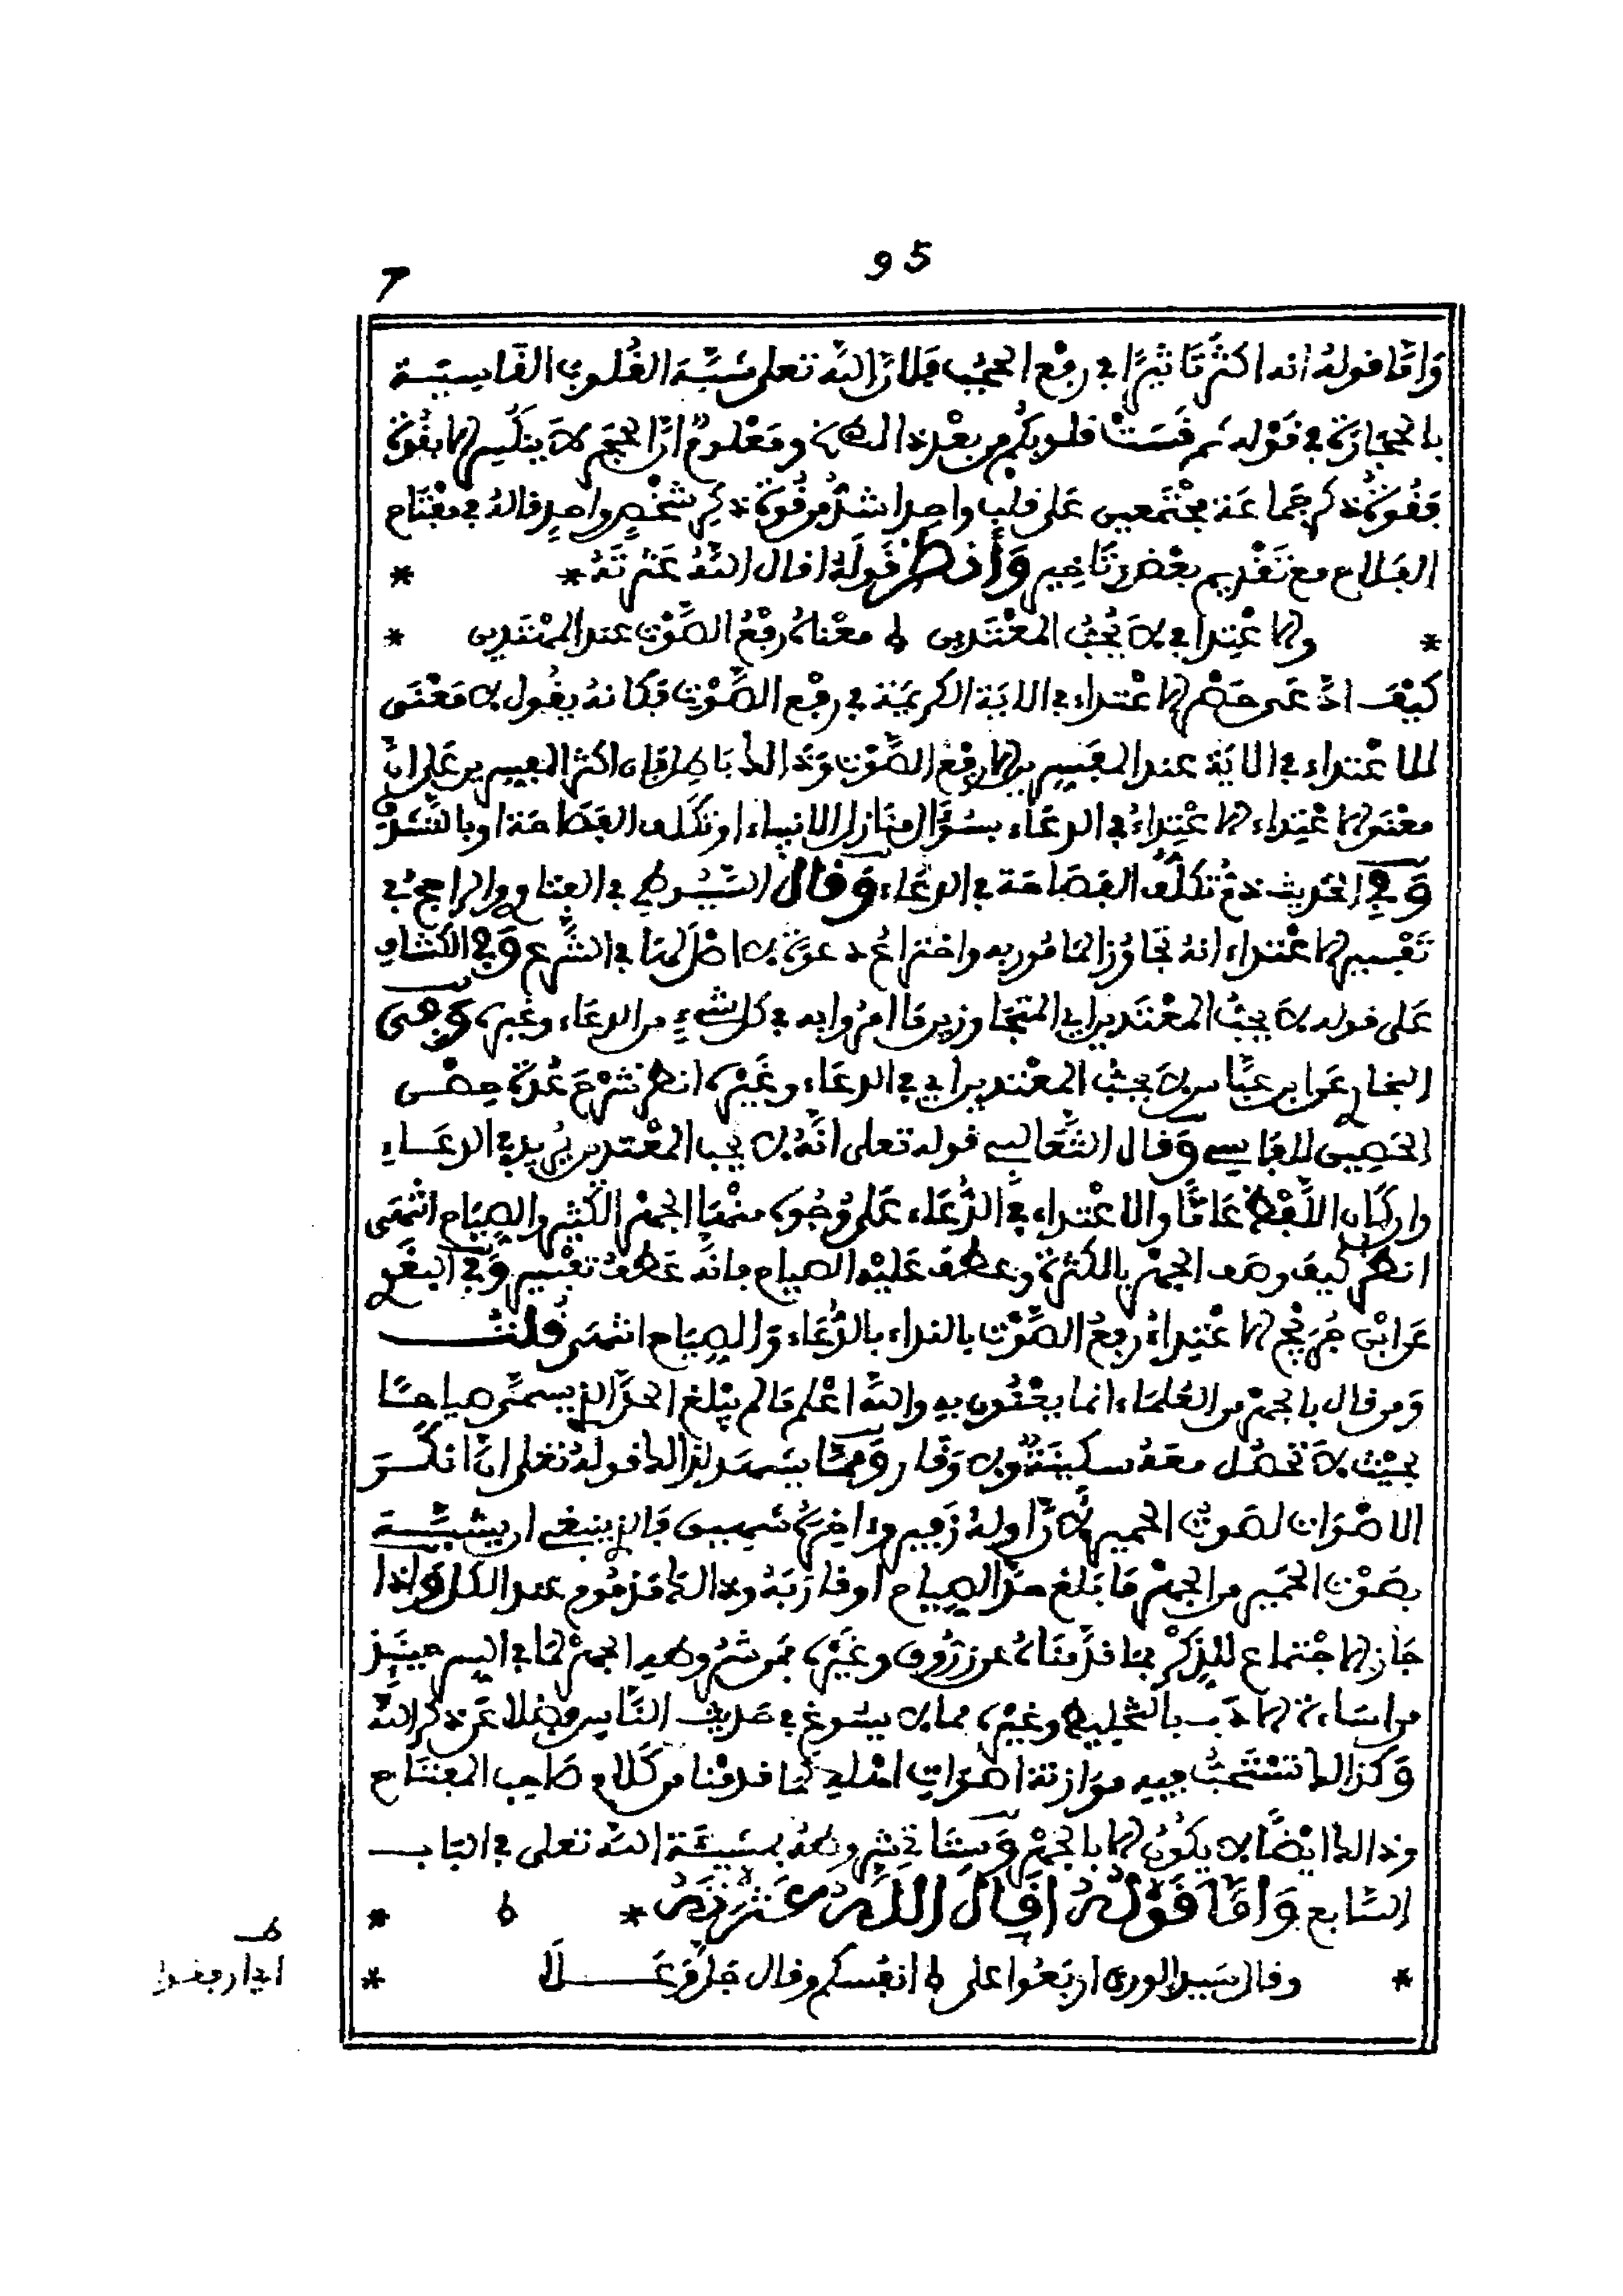 95
7
وَأمَّا قوله انه اكثرُ تَاثيرًا في رفْع الحجُب فَلأنَّ اللَّه تعلى شبَّه القُلوب القَاسِيَة
بالحجَارَة في قَوْله ثم قَسَتْ قلوبكُم من بعْد ذالك ومَعْلومٌ أنَّ الحجَر لاَ ينكَسِر الا بقُوة
فقُوة ذكر جمَاعَة مجْتَمعين عَلى قلْب واحِد اشدُّ من قُوة ذكِر شخْصٍ واحدٍ قاله في مفْتَاح
الفَلاح مع تَقْديم بعْض وتَاخير وَأنظر قَولَهُ اقال اللَّهُ عَثرتَهُ * *
* والاعْتِدا في لاَ يُحبُّ المعْتَدين ه معْناهُ رفْعُ الصَّوْت عند المهْتَدين *
كيْفَ ادَّعى حَصْر الاعْتداء في الاية الكريمَة في رفْع الصَّوْت فكانهُ يقُول لا مَعْنَى
للاعْتداء في الايَة عند المفَسِرين الا رفْعُ الصَّوْت وَذَالك بَاطِل فإن اكثر المفسِرين عَلى انَّ
معْنى الاعْتِداء الاعْتِداءُ في الدعَاء بسُؤال منَازل الانبياء او تكَلُّف الفصَاحَة او بالتَّشدُّق
وَفي الحَديث ذمُّ تكلُّف الفصَاحَة في الدعَاء وَقال السُّيُوطي في الفتاوي والراجحُ في
تَفْسير الاعْتداء انهُ تجَاوُز المامُور به واختراعُ دعوة لا اصْل لهَا في الشَّرع وَفي الكشاف
عَلى قوله لاَ يحبُّ المعْتَدين اي المتجَاوزين مَا امرُوا به في كل شَيْءٍ من الدعَاء وغَيره وَفي
البخاري عَن ابن عبَّاس لاَ يحبُّ المعْتدين اي في الدعَاء وغَيْره انظر شرْحَ عُدة حِصْن
الحَصِين للفَاسي وَقال الثَّعَالبي قوله تعلى انَّهُ لا يحب المعْتدين يُريد في الدعَاء
وان كَان اللَّفْظ عَامًّا والاعْتداء في الدُّعَاء عَلى وُجُوه منْهَا الجهْر الكثير والصِيَاح انْتهَى
انظر كيف وصَف الجهْر بالكثرَة وعَطَف عَليْه الصياح فانَّه عَطْفُ تفْسير وَفي البغَوي
عَن ابْن جُرَيْج الاعْتِداءُ رفعُ الصَّوْت بالنداء بالدُّعَاء وَالصِيَاح انتهَى قُلتُ
وَمن قال بالجهْر من العُلمَاء انما يعْنُون به واللَّه اعْلم مَا لم يبْلغ الحدَّ الذي يسمَّى صيَاحًا
بحيْث لاَ تحصُل معَهُ سكينَةٌ ولا وَقَار وَممَّا يشهَد لذالك قولهُ تعَلى انَّ انكَرَ
الاصْوَات لصَوتُ الحمير لأنَّ اولهُ زَفير وءاخرهُ شهيق فَالذي ينبغي ان يشبَّهَ
بصَوْت الحَمير من الجهْر مَا بَلغ حدَّ الصِياح او قارَبَهُ وذالك مَذمُوم عند الكل وَاذا
جَاز الاجْتماع للذِكْر بمَا قدَّمنَاهُ عن زرُّوق وغَيْره فمن شرُوطه الجهْر لمَا في السر حينَئِذ
من اسَاءَة الادَب بالتَّخْليط وغيْره مما لا يسُوغ في حَديث النَّاس فضلا عَن ذكر اللَّه
وَكذالك تسْتَحبُّ فيه موَازنة اصوَات اهْله كما قدمْنا من كَلام صَاحِب المفتَاح
وذالك ايْضًا لا يكُونُ الا بالجهْر وَستَاتي شروطهُ بمَشيئَة اللَّه تعلى في البَاب
السَّابع وَأمَّا قَوْلُهُ اقَالَ اللَّهُ عَثْرَتَهُ * ه *
* وقال سَيد الورى ارْبَعُوا على ه انفسكم وقال جَل وعَلاَ *
ط
اي ارفقوا